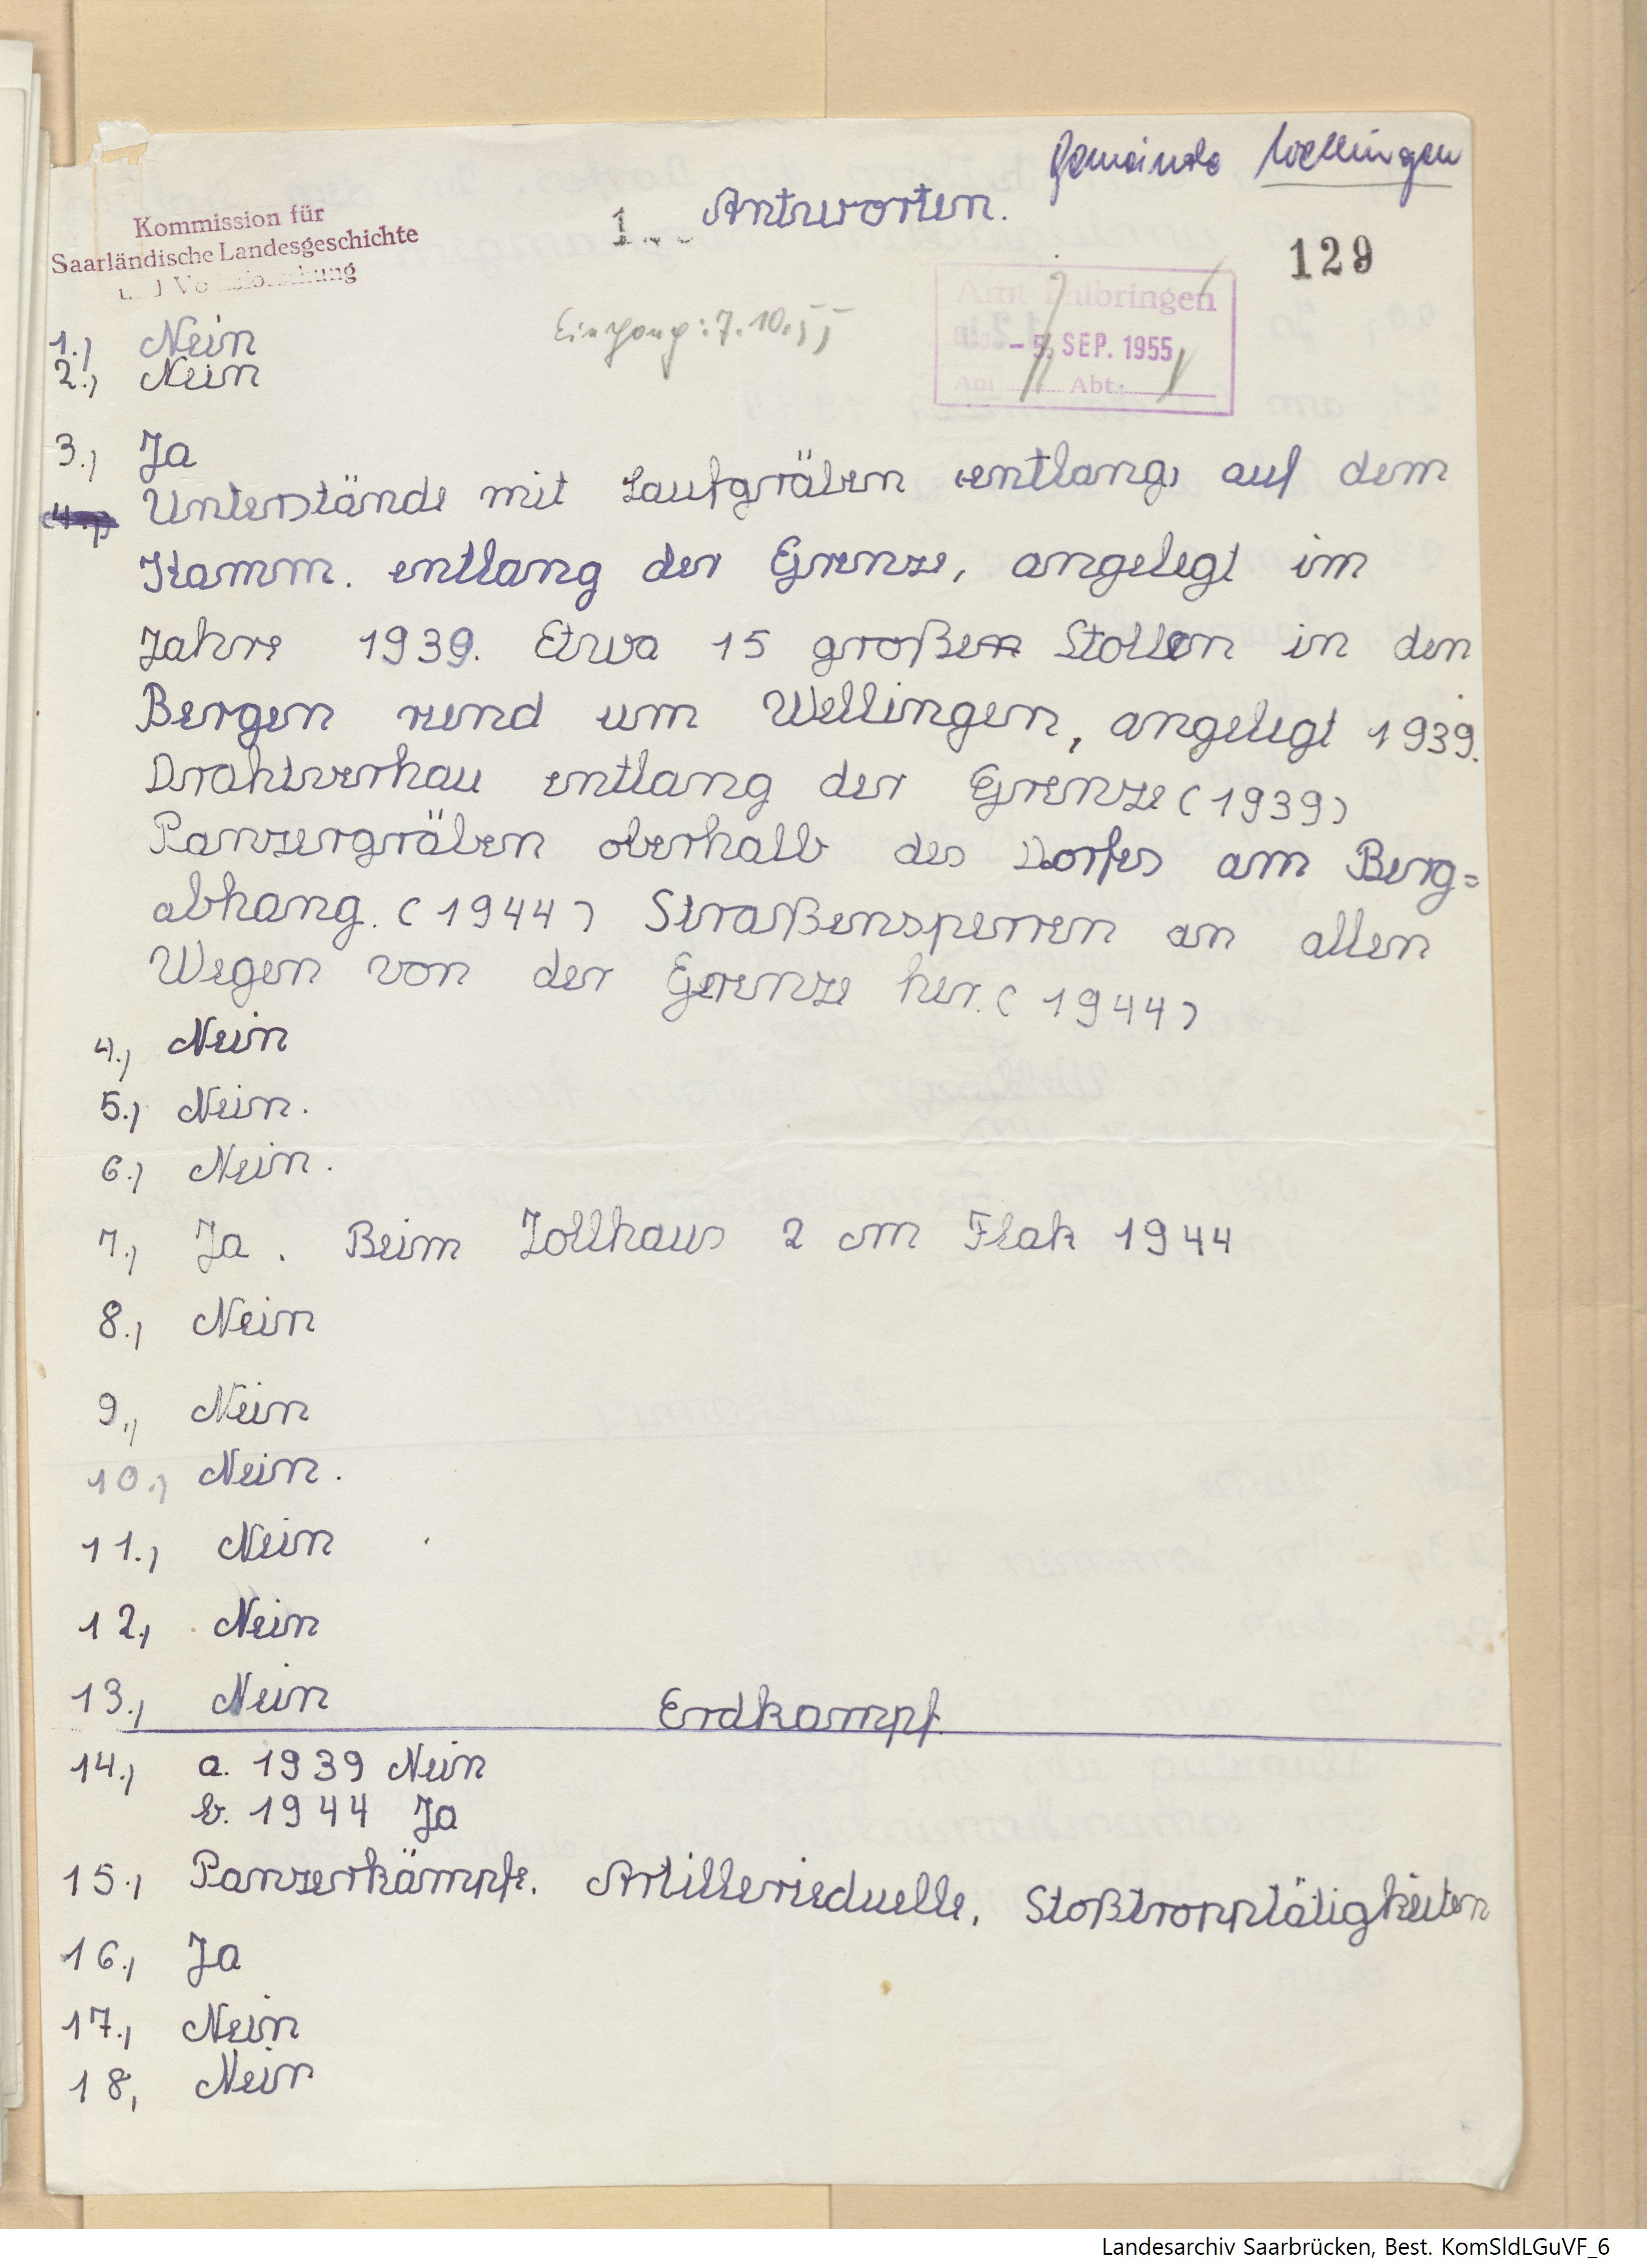 Gemeinde Wellingen
Antworten.
1
129
Kommission für
Saarländische Landesgeschichte
und Volksforschung
Amt Hilbringen
- 5. SEP. 1955
Abt.
Eingang: 7.10.55
1.) Nein
2.) Nein
3.) Ja
Unterstände mit Laufgräben entlang, auf dem
Kamm. entlang der Grenze, angelegt im
Jahre 1939. Etwa 15 großen Stollen in den
Bergen rund um Wellingen, angelegt 1939.
Drahtverhau entlang der Grenze (1939)
Panzergräben oberhalb des Dorfes am Berg=
abhang. (1944) Straßensperren an allen
Wegen von der Grenze her. (1944)
4.) Nein
5.) Nein.
6.) Nein.
7.) Ja. Beim Zollhaus 2 cm Flak 1944
8.) Nein
9.) Nein
10.) Nein.
11.) Nein
12.) Nein
13.) Nein
Erdkampf.
14.) a. 1939 Nein
b. 1944 Ja
15.) Panzerkämpfe. Artillerieduelle, Stoßtrupptätigkeiten
16.) Ja
17.) Nein
18, Nein
Landesarchiv Saarbrücken, Best. KomSldLGuVF_6